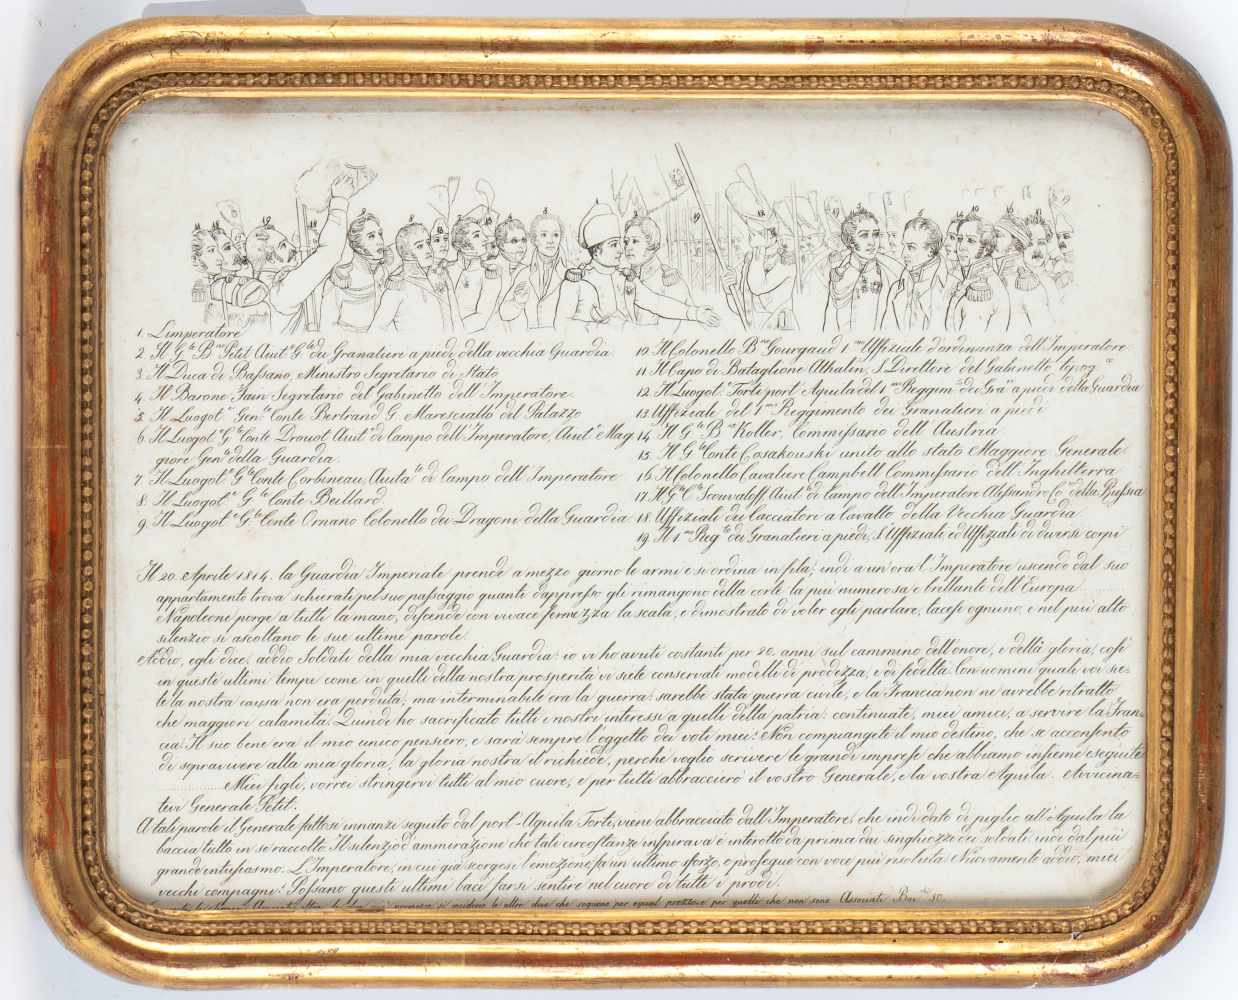 1. L'imperatore
2. Il G.le B.ne Petit Aiut.e G.le dei Granatieri a piedi della vecchia Guardia
3. Il Duca di Bassano, Ministro Segretario di Stato
4. Il Barone Fain Segretario del Gabinetto dell'Imperatore.
5. Il Luogot.e Gen.le Conte Bertrand G. Maresciallo del Palazzo
6. Il Luogot.e G.le Conte Drouot Aiut.e di campo dell'Imperatore, Aiut.e Mag
giore Gen.le della Guardia.
7. Il Luogot.e G.le Conte Corbineau Aiuta.te di campo dell'Imperatore
8. Il Luogot.e G.le Conte Beillard
9. Il Luogot.e G.le Conte Ornano Colonello dei Dragoni della Guardia
10. Il Colonello B.ne Gourgaud 1.mo Uffiziale d'ordinanza dell'Imperatore
11. Il Capo di Bataglione Athalin, S. Direttore del Gabinetto topog.co
12. Il Luogot. Forti port'Aquila del 1.mo Reggim.to di Gra.ri a piedi della Guardia
13. Uffiziale del 1.mo Reggimento dei Granatieri a piedi
14. Il G.le B.ne Koller, Commissario dell'Austria
15. Il G.le Conte Cosakouski unito allo stato Maggiore Generale
16. Il Colonello Cavaliere Campbell Commissario dell'Inghilterra
17. Il G.le C.te Scouvaloff Aiut.e di campo dell'Imperatore Alessandro Co.rio della Russia
18. Uffiziali dei Cacciatori a Cavallo della Vecchia Guardia.
19. Il 1.mo Reg.to dei Granatieri a piedi, S'Uffiziale ed Uffiziali di diversi corpi
Il 20. Aprile 1814. la Guardia Imperiale prende a mezzo giorno le armi e si ordina in fila; indi a un'ora l'Imperatore uscendo dal suo
appartamento trova schierati pel suo passaggio quanti d'appresso gli rimangono della corte la più numerosa e brillante dell'Europa
Napoleone porge a tutti la mano, discende con vivace fermezza la scala, e dimostrato di voler egli parlare, tacesi ognuno, e nel più alto
silenzio si ascoltano le sue ultime parole.
Addio, egli dice, addio Soldati della mia vecchia Guardia: io vi ho avuti costanti per 20. anni sul cammino dell'onore, e della gloria; così
in questi ultimi tempi come in quelli della nostra prosperità vi siete conservati modelli di prodezza, e di fedeltà. Con uomini quali voi sie-
te la nostra causa non era perduta; ma interminabile era la guerra: sarebbe stata guerra civile, e la Francia non ne avrebbe ritratto
che maggiori calamità. Quindi ho sacrificato tutti i nostri interessi a quelli della patria: continuate, miei amici, a servire la Fran-
cia: Il suo bene era il mio unico pensiero, e sarà sempre l'oggetto dei voti miei: Non compiangete il mio destino, che se acconsento
di sopravivere alla mia gloria, la gloria nostra il richiede, perchè voglio scrivere le grandi imprese che abbiamo insieme eseguite
Miei figli, vorrei stringervi tutti al mio cuore, e per tutti abbraccierò il vostro Generale, e la vostra Aquila. Avvicina-
tevi Generale Petit.
A tali parole il Generale fattosi innanzi seguito dal port-Aquila Forti, viene abbracciato dall'Imperatore, che indi dato di piglio all'Aquila la
baccia tutto in se raccolto. Il silenzio d'ammirazione che tale circostanze inspirava è interotto da prima dai singhiozzi dei soldati, indi dal più
grande entusiasmo. L'Imperatore, in cui già scorgesi l'emozione, fa un ultimo sforzo, e prosegue con voce più risoluta. Nuovamente addio, miei
vecchi compagni: Possano questi ultimi baci farsi sentire nel cuore di tutti i prodi.
si vedono le altre due che seguono per egual prezzo e per quelli che non sono Associati